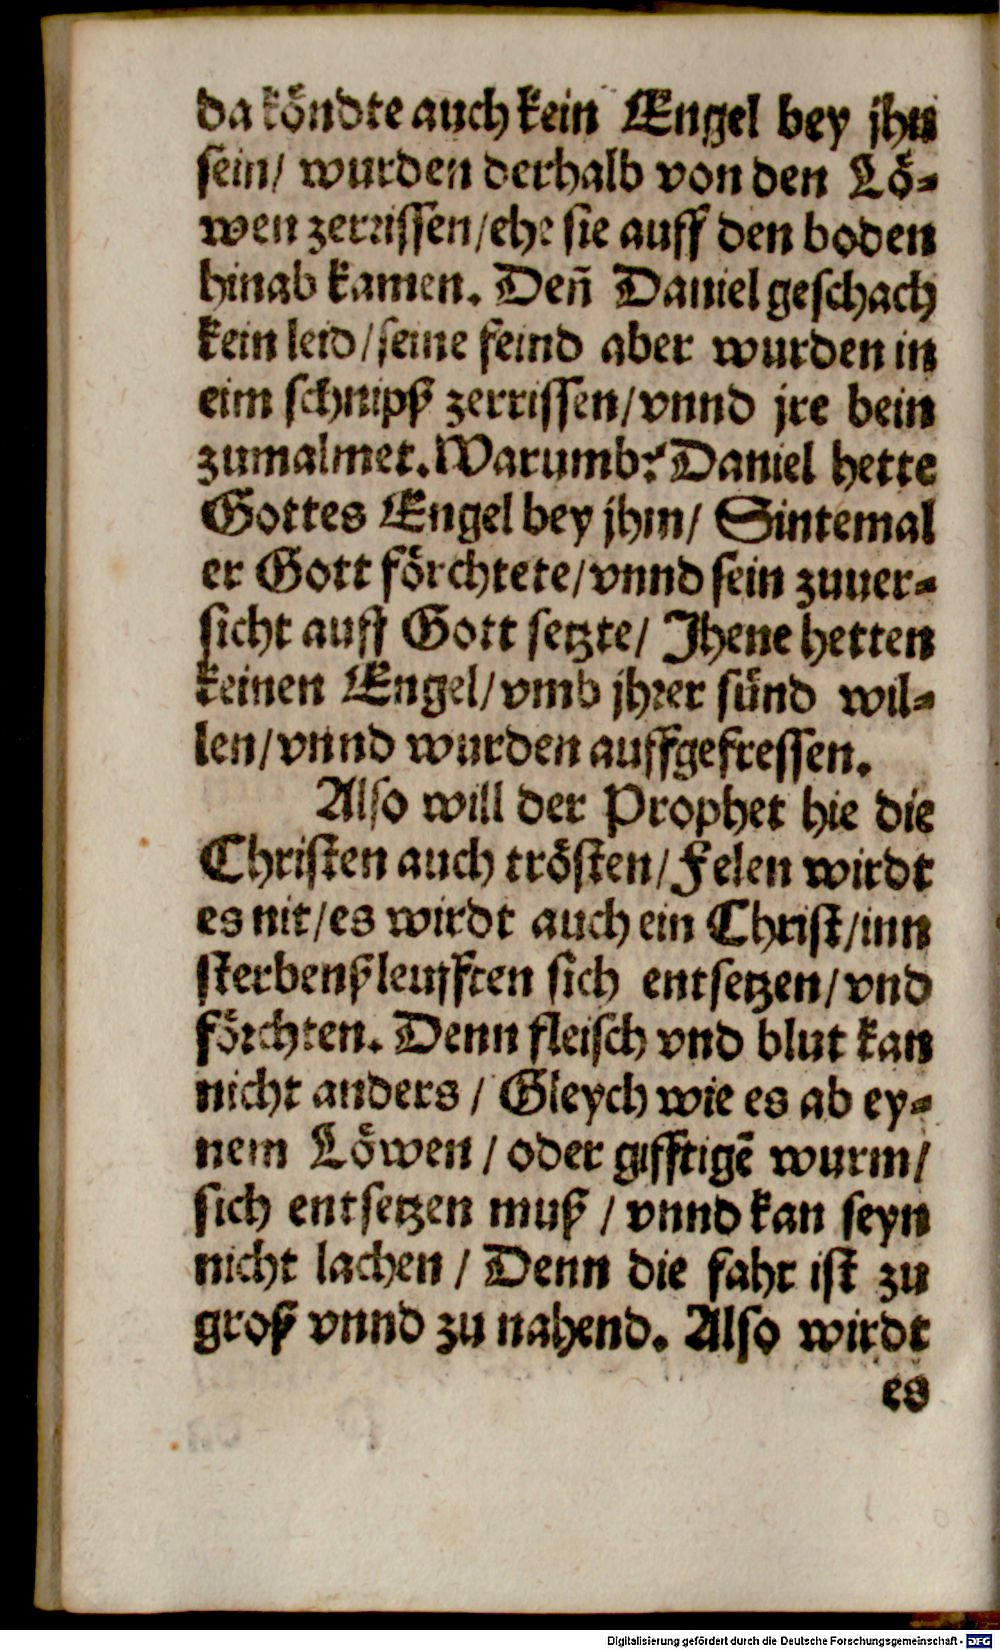 da köndte auch kein Engel bey jhn
sein/ wurden derhalb von den Lö-
wen zerrissen/ehe sie auff den boden
hinab kamen. Deñ Daniel geschach
kein leid/seine feind aber wurden in
eim schnipß zerrissen/vnnd jre bein
zumalmet. Warumb? Daniel hette
Gottes Engel bey jhm/ Sintemal
er Gott förchtete/vnnd sein zuuer-
sicht auff Gott setzte/ Jhene hetten
keinen Engel/vmb jhrer sünd wil-
len/vnnd wurden auffgefressen.
Also will der Prophet hie die
Christen auch trösten/Felen wirdt
es nit/es wirdt auch ein Christ/inn
sterbenßleufften sich entsetzen/vnd
förchten. Denn fleisch vnd blut kan
nicht anders/ Gleych wie es ab ey-
nem Löwen/oder gifftigē wurm/
sich entsetzen muß/vnnd kan seyn
nicht lachen/Denn die fahr ist zu
groß vnnd zu nahend. Also wirdt
es
Digitalisierung gefördert durch die Deutsche Forschungsgemeinschaft - DFG